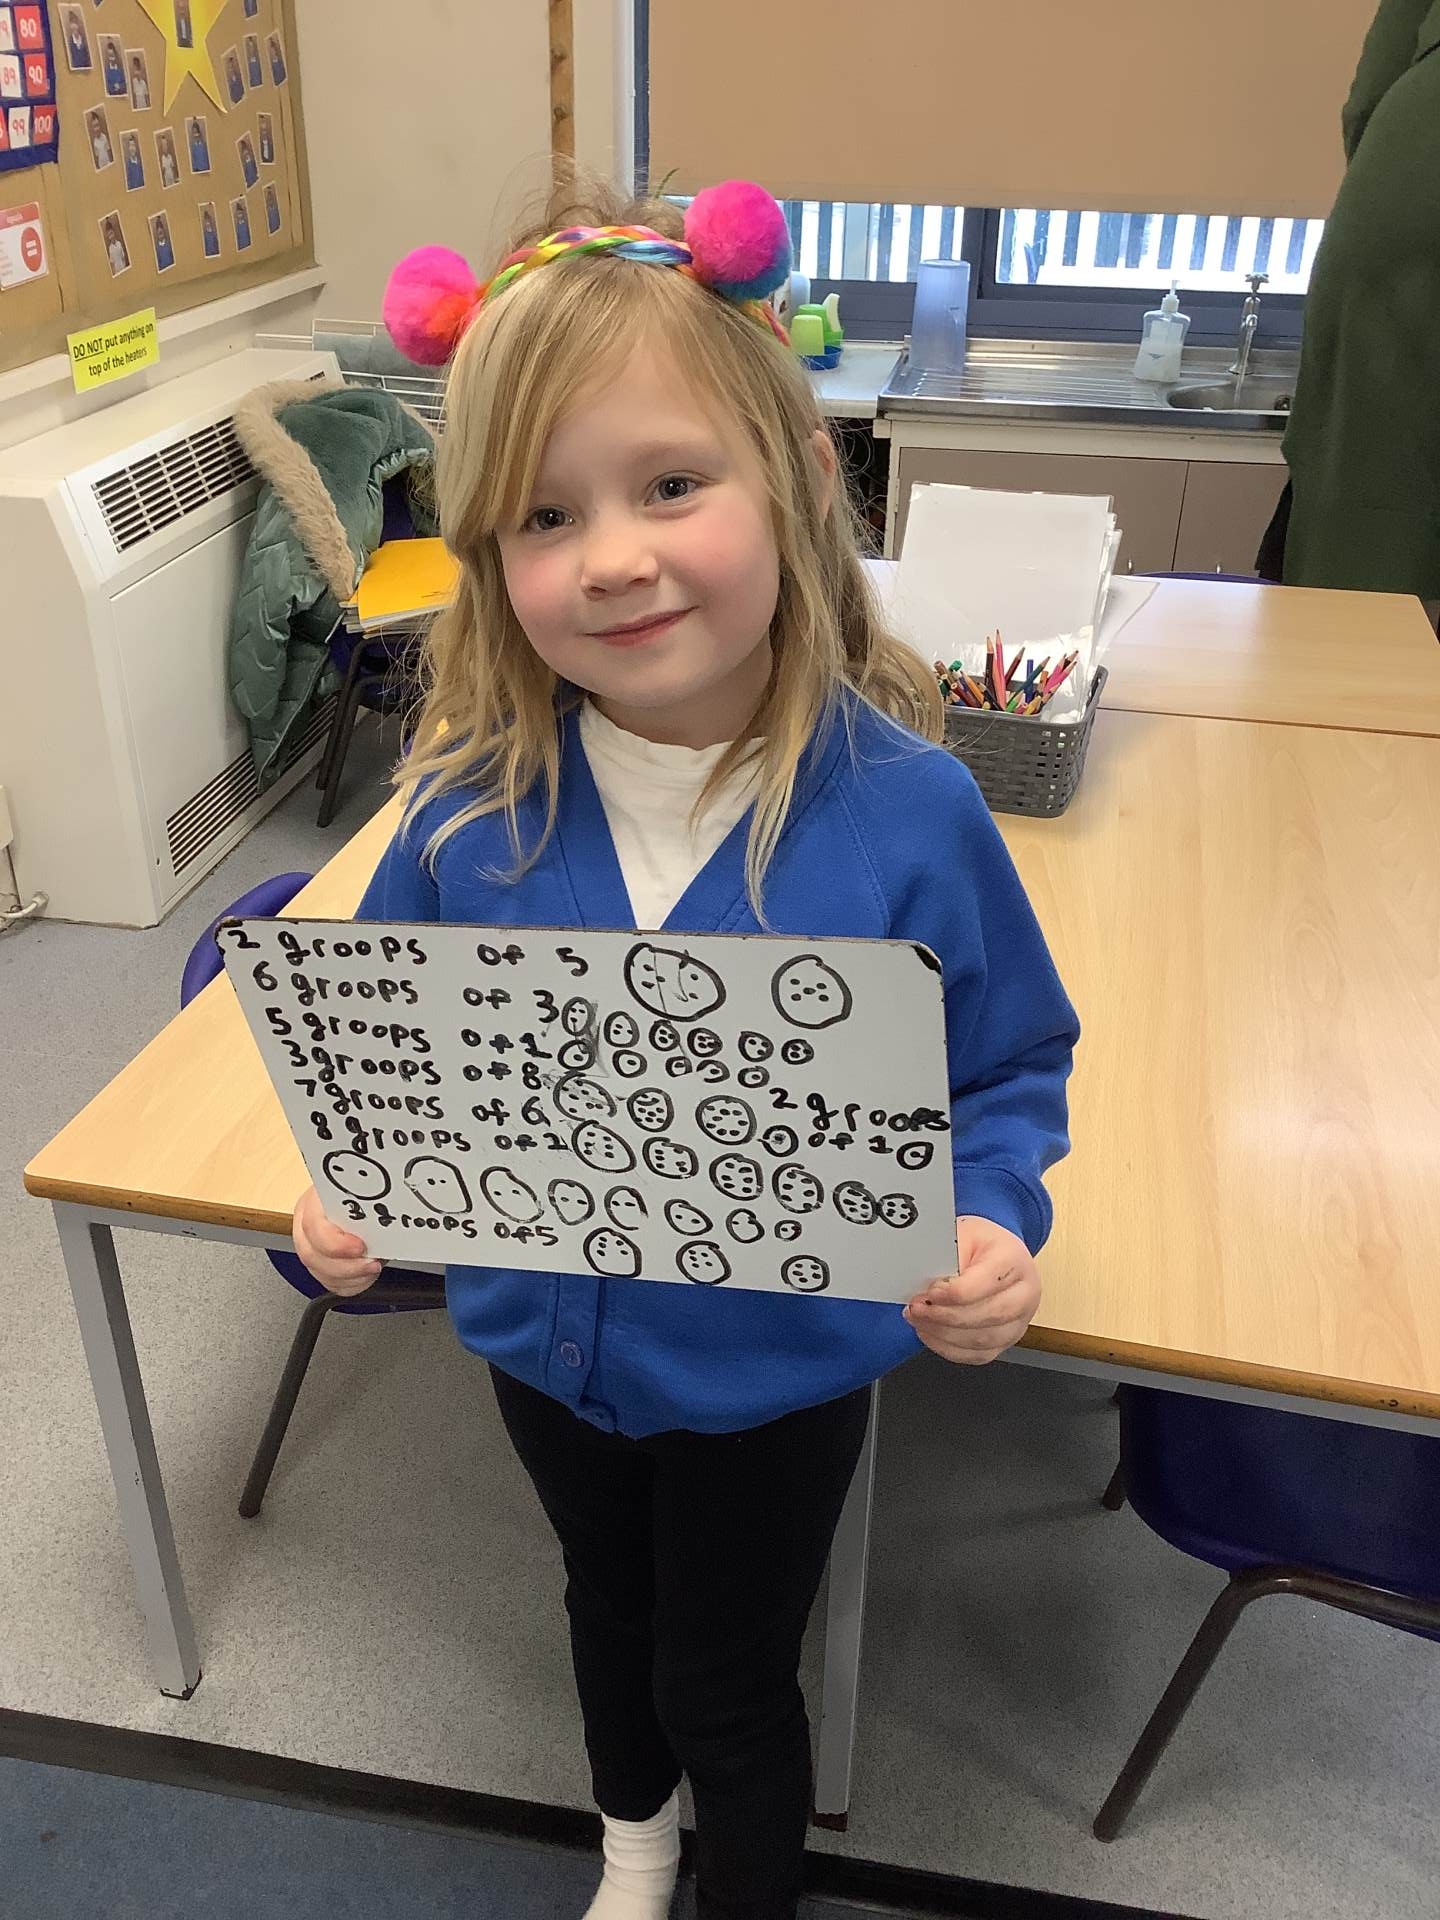 80
89 90
99 100
DO NOT put anything on
top of the heaters
2 groops of 5
6 groops of 3
5 groops of 1
3 groops of 8
7 groops of 6
8 groops of 2
2 groops
of 1
3 groops of 5